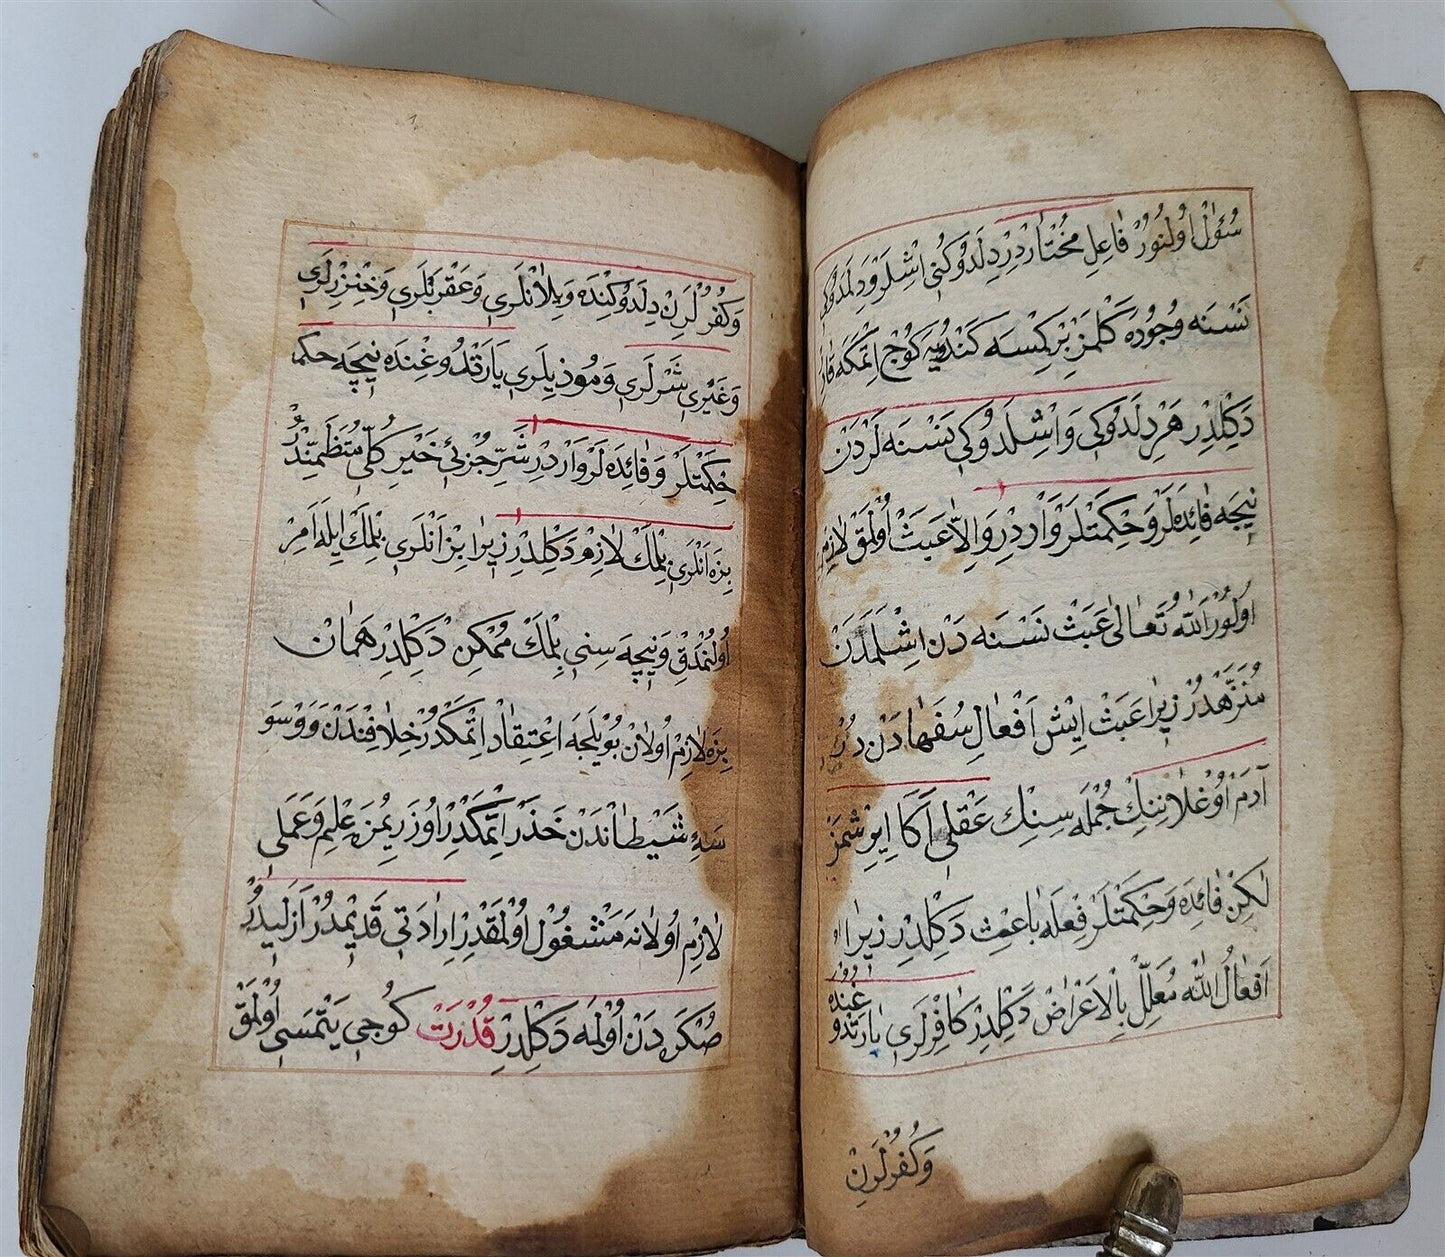 سُؤٰالْ اُولُنُورْ فَاعِلِ مُخْتَارْدِرْ دِلَدُوكُنِى اِشْلَرْ وَدِلَمَدُوكِى
نَسْنَه وُجُودَه كَلْمَزْ بَرْ كِمْسَه كَنْدُويَه كَوُجْ اِتْمَكَه قَادِرْ
دَكِلْدِرْ هَرْ دِلَدُوكِى وَاِشْلَدُوكِى نَسْنَه لَرْدَنْ
نِيچَه فَائِدَه لَرْ وَحِكْمَتْلَرْ وَارْدِرْ وَاِلَّا عَبَثْ اُولْمَقْ لَازِمْ
اُولُورْ اَللّٰه تَعَالٰى عَبَثْ نَسْنَه دَنْ اِشْلَمَدَنْ
مُنَزَّهْدُرْ زِيرَا عَبَثْ اِيشْ اَفْعَالِ سُفَهَا دَنْ دُرْ
آدَمْ اوُغْلَانِنِكْ جُمْلَه سِنِكْ عَقْلِى اَكَا اِيرِشْمَزْ
لٰكِنْ فَائِدَه وَحِكْمَتْلَرْ فِعْلَه بَاعِثْ دَكِلْدِرْ زِيرَا
اَفْعَالُ اللّٰه مُعَلَّلْ بِالْاَعْرَاضْ دَكِلْدِرْ كَافِرْلَرِى يَارَتْدُوغِنْدَه
وَكُفُرْلَرِنْ
وَكُفُرْلَرِنْ دِلَدُوكِنْدَه وَيِلَانْلَرِى وَعَقْرَبْلَرِى وَخِنْزِرْلَرِى
وَغَيْرِى شَرْلَرِى وَمُوذِيلَرِى يَارَتْدُوغِنْدَه نِيچَه حكم
حِكْمَتْلَرْ وَفَائِدَه لَرْ وَارْدِرْ شَرِّ جُزْئِى خَيْرِ كُلِّى مُتَظَمِّنْدُرْ
بِزَه اَنْلَرِى بِلْمَكْ لَازِمْ دَكِلْدِرْ زِيرَا بِزْ اَنْلَرِى بِلْمَكْ اِيلَه اَمِرْ
اُولُنْمَدِقْ وَنِيچَه سِنِى بِلْمَكْ مُمْكِنْ دَكِلْدِرْ هَمَانْ
بِزَه لَازِمْ اُولَانْ بُويْلَجَه اِعْتِقَادْ اِتْمَكْدُرْ خِلَافِنْدَنْ وَوَسْوَ
سَهِٔ شَيْطَانْدَنْ حَذَرْ اِتْمَكْدِرْ اوُزَرِيمُزَه عِلِمْ وَعَمَلِى
لَازِمْ اُولَانَه مَشْغُولْ اُولْمَقْدِرْ اِرَادَتِى قَدِيمْدُرْ اَزَلِيدُرْ
صُكْرَه دَنْ اُولْمَه دَكِلْدِرْ قُدْرَتْ كُوجِى يَتْمَسِى اُولْمَقْ